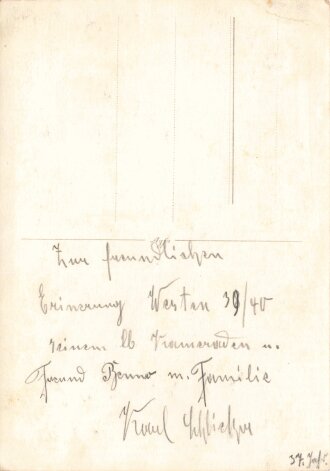 Zur freundlichen
Erinerung Westen 39/40
seinem lb Kameraden u.
Freund Benno m. Familie
Karl
37. Inf.